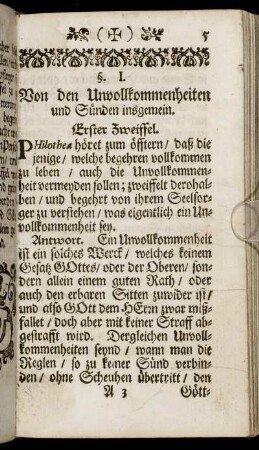 ( ✠ ) 5
§. I.
Von den Unvollkommenheiten
und Sünden insgemein.
Erster Zweiffel.
PHilothea höret zum öfftern / daß die
jenige / welche begehren vollkommen
zu leben / auch die Unvollkommen-
heit vermeyden sollen; zweiffelt derohal-
ben / und begehrt von ihrem Seelsor-
ger zu verstehen / was eigentlich ein Un-
vollkommenheit sey.
Antwort. Ein Unvollkommenheit
ist ein solches Werck / welches keinem
Gesatz GOttes / oder der Oberen / son-
dern allein einem guten Rath / oder
auch den erbaren Sitten zuwider ist /
und also GOtt dem HErrn zwar miß-
fallet / doch aber mit keiner Straff ab-
gestrafft wird. Dergleichen Unvoll-
kommenheiten seynd / wann man die
Reglen / so zu keiner Sünd verbin-
den / ohne Scheuhen übertritt / den
A 3 Gött-